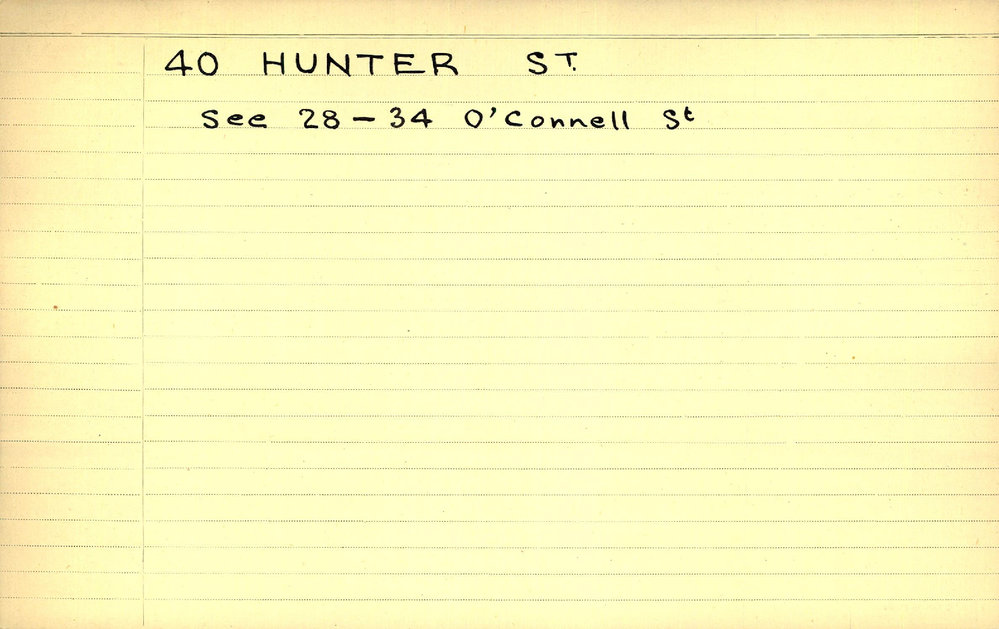 40 HUNTER ST.
See 28-34 O'Connell St